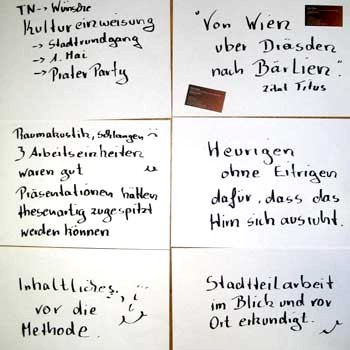 TN -> Wünsche
Kultureinweisung
-> Stadtrundgang
-> 1. Mai
-> Prater Party
"Von Wien
über Dräsden
nach Bärlien".
Zitat Titus
Raumakustik, Schlangen
3 Arbeitseinheiten
waren gut
Präsentationen hätten
thesenartig zugespitzt
werden können
Heurigen
ohne Eitrigen
dafür, dass das
Hirn sich ausruht.
Inhaltliches
vor die
Methode.
Stadtteilarbeit
im Blick und vor
Ort erkundigt.